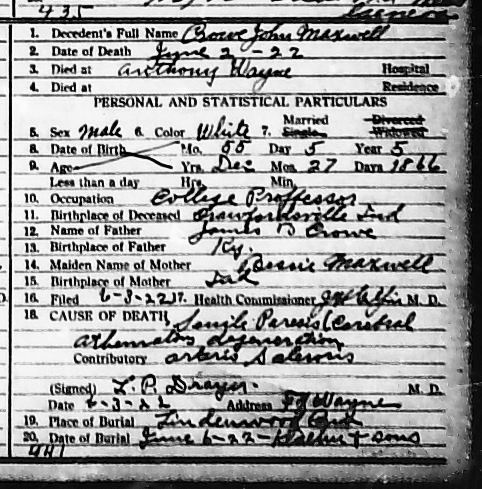 435
1. Decedent's Full Name Crowe John Maxwell
2. Date of Death June 2-22
3. Died at Anthony Wayne Hospital
4. Died at Residence
PERSONAL AND STATISTICAL PARTICULARS
5. Sex Male 6. Color White 7. Married Single Divorced Widowed
8. Date of Birth Mo. 55 Day 5 Year 5
9. Age Yrs. Dec Mos. 27 Days 1866
Less than a day Hrs. Min.
10. Occupation College Proffessor
11. Birthplace of Deceased Crawfordsville Ind
12. Name of Father James B Crowe
13. Birthplace of Father Ky.
14. Maiden Name of Mother Bessie Maxwell
15. Birthplace of Mother Ind
16. Filed 6-3-22 17. Health Commissioner M. D.
18. CAUSE OF DEATH, Senile Paresis (Cerebral
athematos degeneration
Contributory arterio Salerosis
(Signed) L. P. Drayer. M. D.
Date 6-3-22 Address Ft Wayne
19. Place of Burial Lindenwood
20. Date of Burial June 6-22- & sons
441